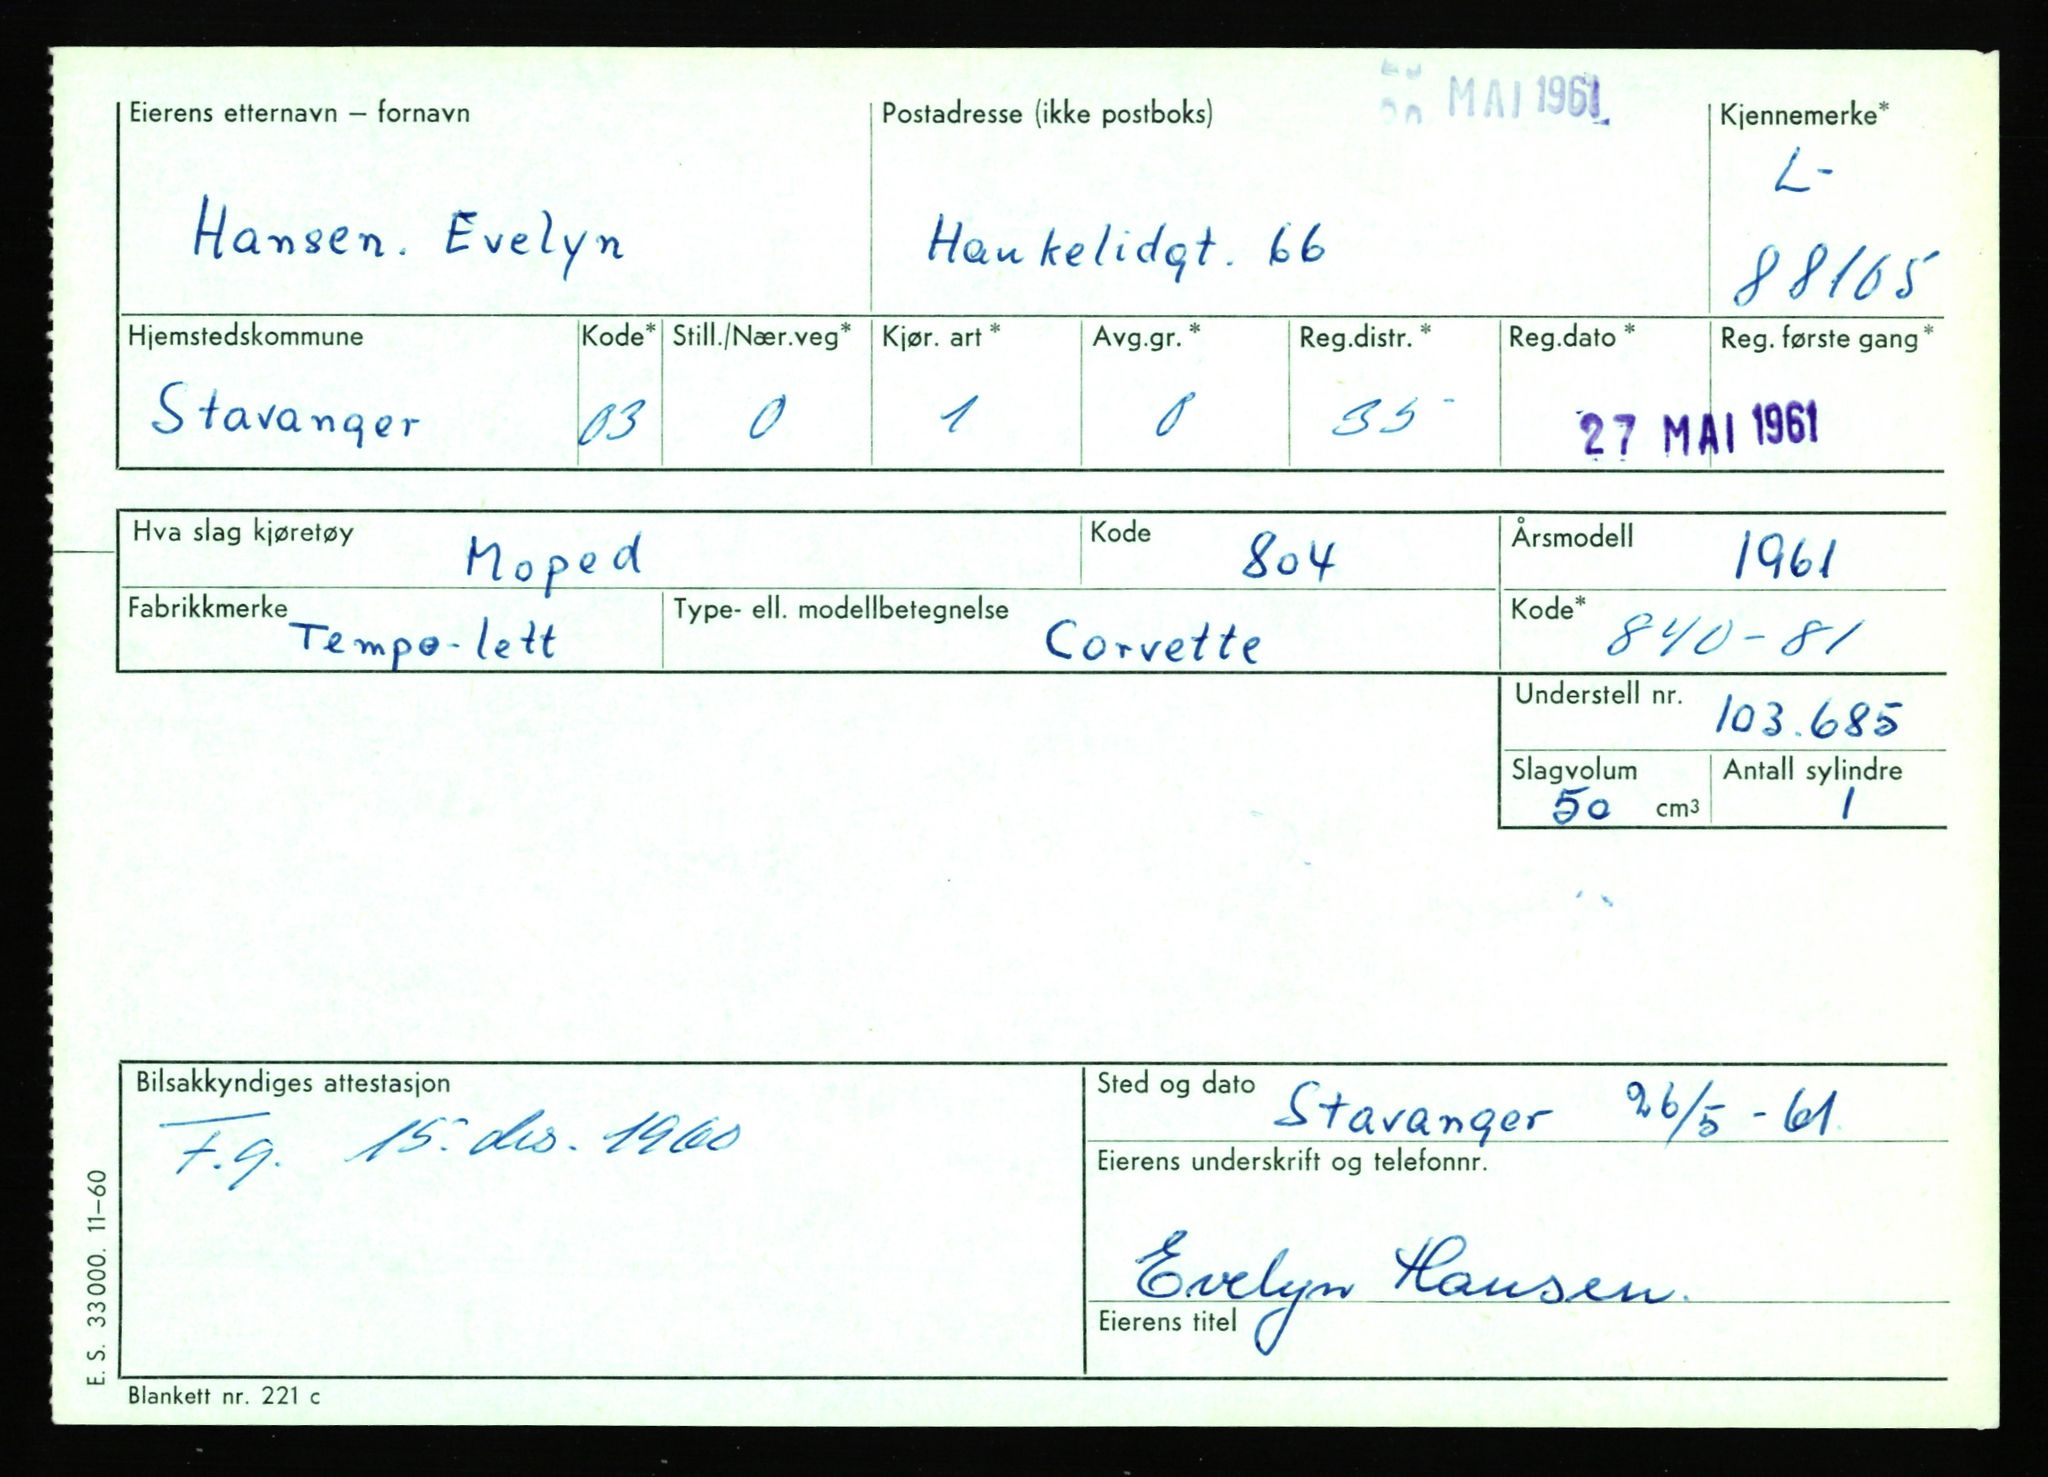 Eierens etternavn – fornavn
Hansen. Evelyn
Postadresse (ikke postboks)
MAI 1961
Haukelidgt. 66
Kjennemerke*
L-
88105
Hjemstedskommune
Stavanger
Kode*
03
Still./Nær.veg*
0
Kjør. art *
1
Avg.gr. *
0
Reg.distr. *
35
Reg.dato *
Reg. første gang*
27 MAI 1961
Hva slag kjøretøy Moped
Kode 804
Årsmodell 1961
Fabrikkmerke Tempo-lett
Type- ell. modellbetegnelse Corvette
Kode* 840-81
Understell nr. 103.685
Slagvolum
50 cm3
Antall sylindre
1
Bilsakkyndiges attestasjon
F.g. 15. des. 1960
Sted og dato Stavanger 26/5-61
Eierens underskrift og telefonnr.
Evelyn Hansen.
Eierens titel
E. S. 33000. 11–60
Blankett nr. 221 c